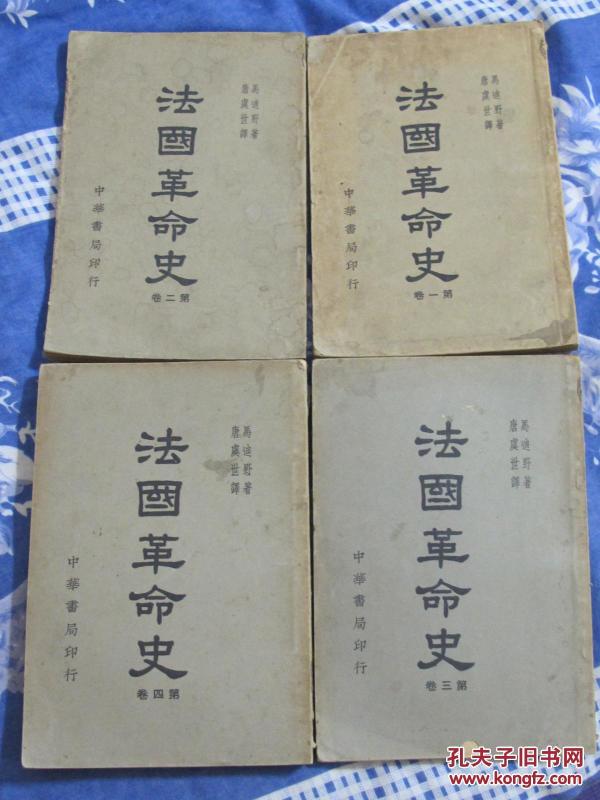 馬迪野著
唐虞世譯
法國革命史
第一卷
中華書局印行
馬迪野著
唐虞世譯
法國革命史
第二卷
中華書局印行
馬迪野著
唐虞世譯
法國革命史
第三卷
中華書局印行
馬迪野著
唐虞世譯
法國革命史
第四卷
中華書局印行
孔夫子旧书网
www.kongfz.com